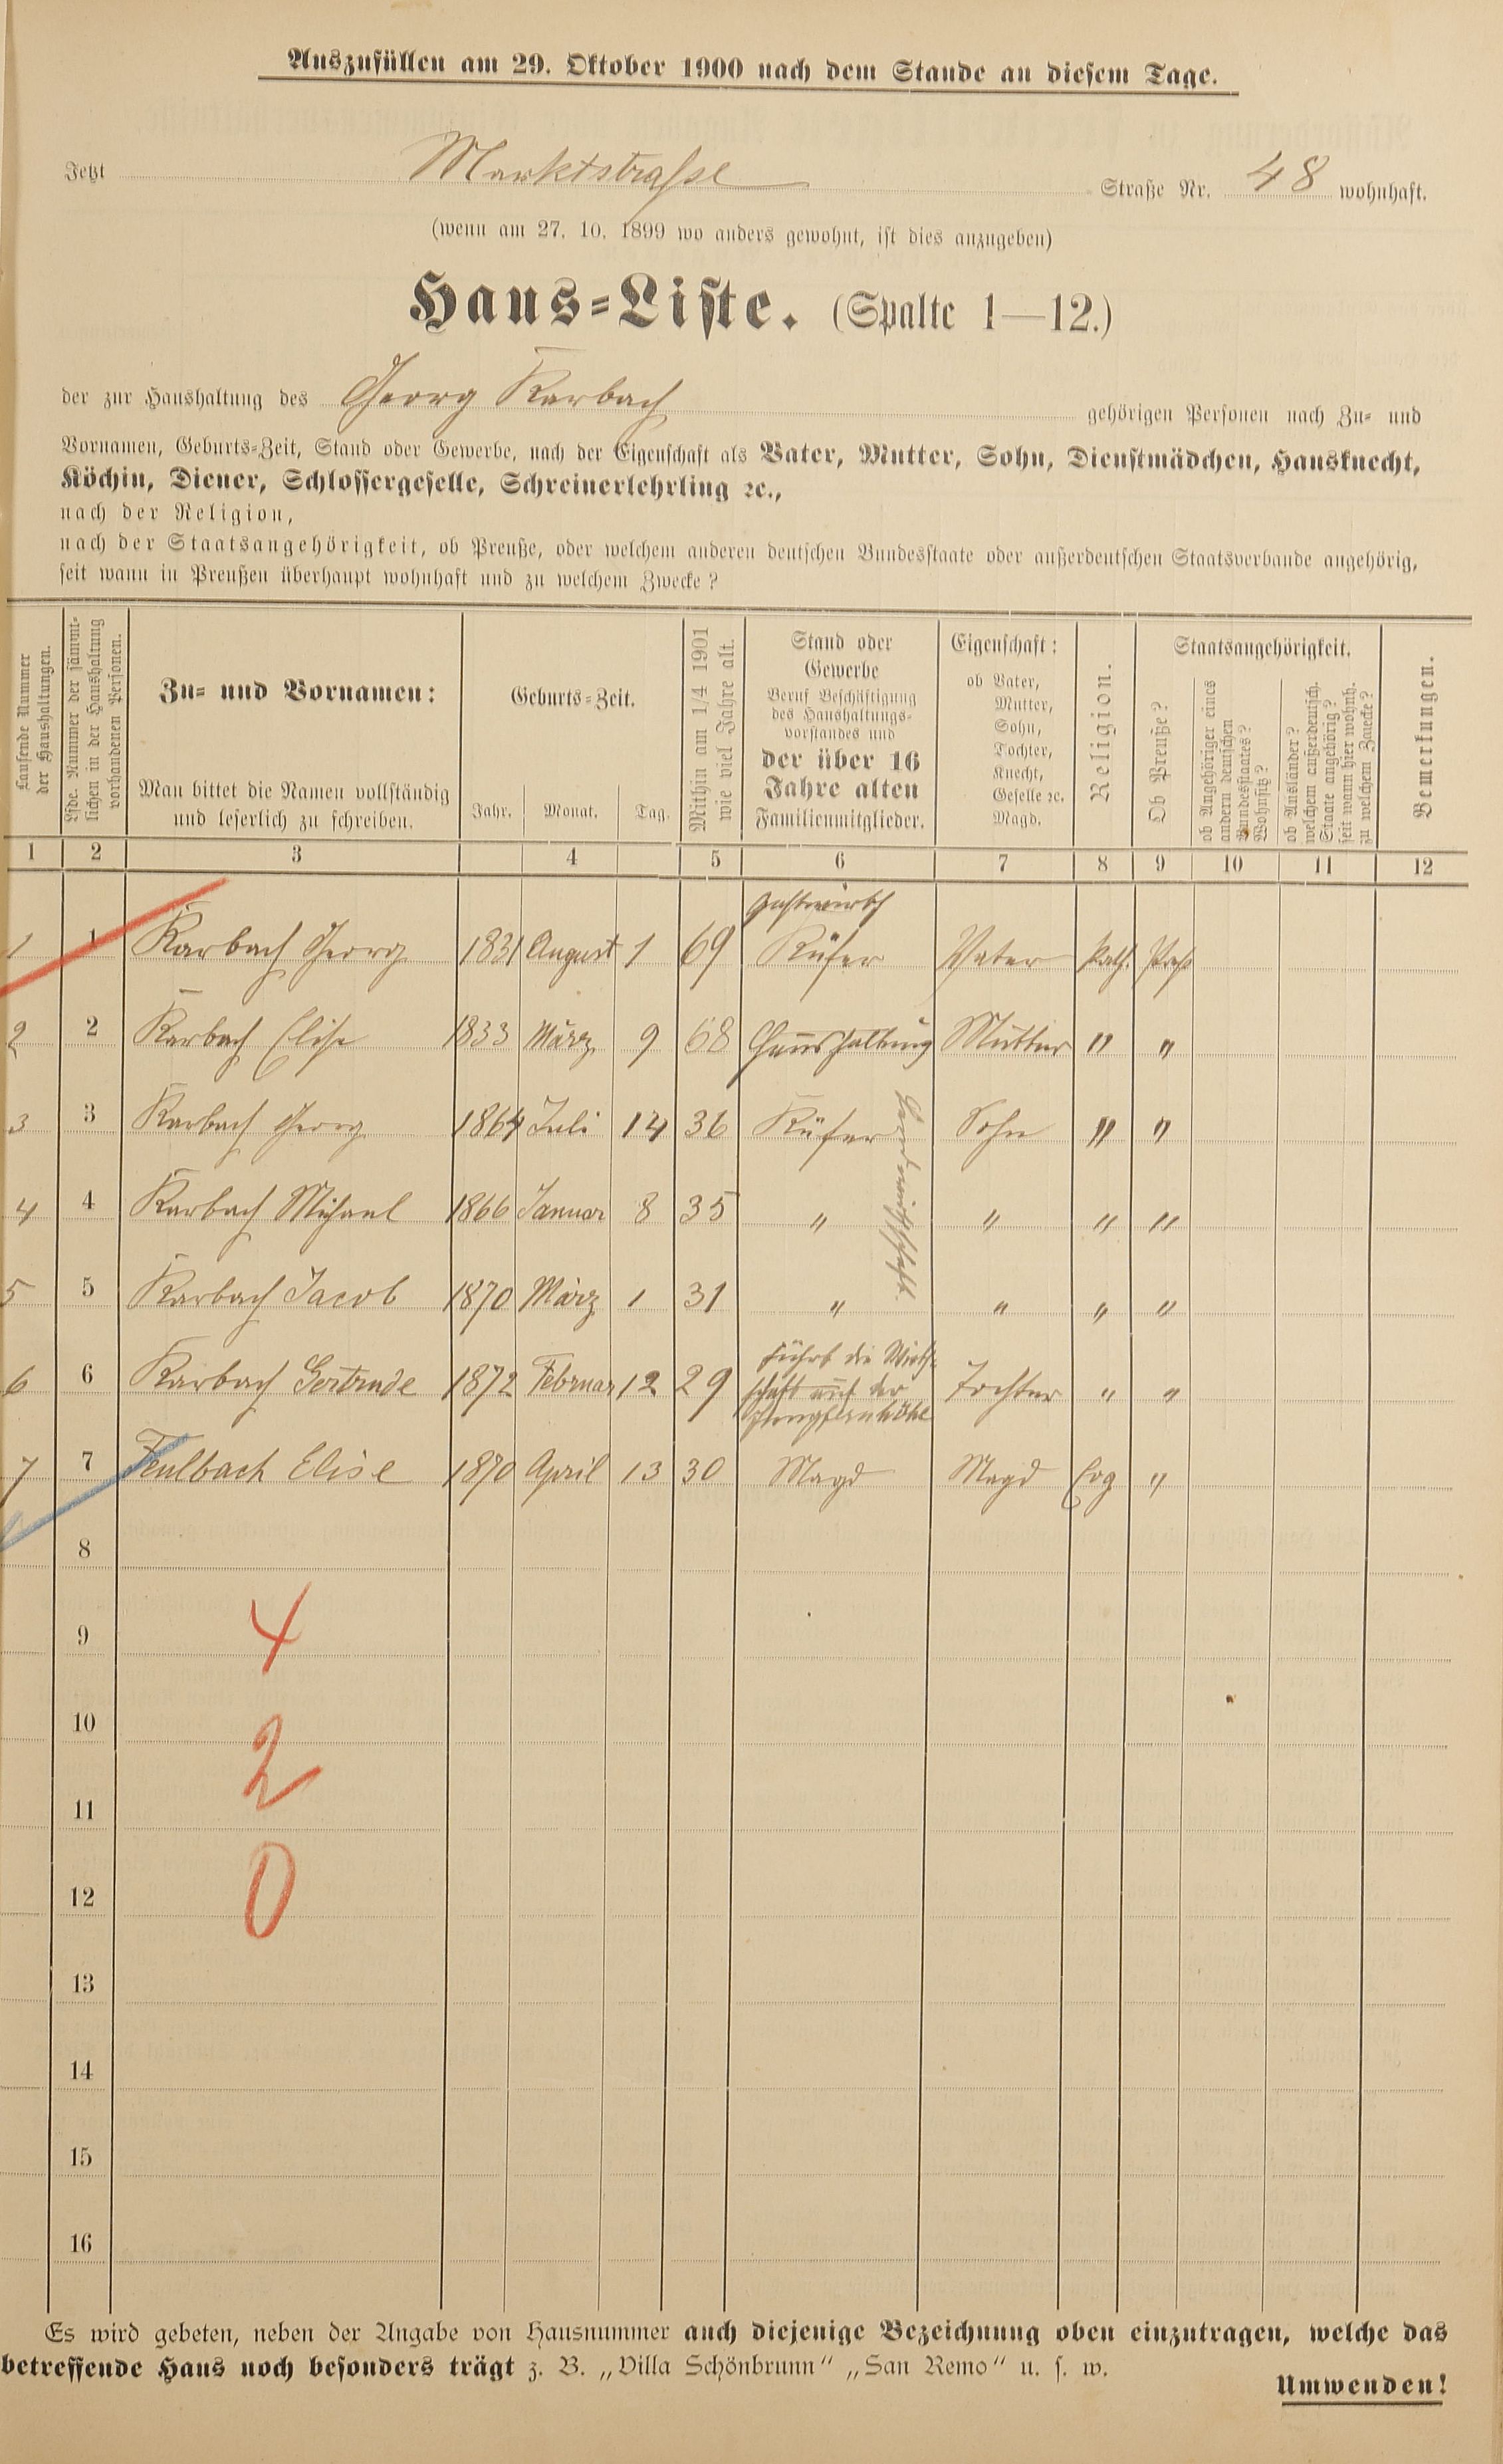 Auszufüllen am 29. Oktober 1900 nach dem Stande an diesem Tage.
Jetzt Marktstraße Straße Nr. 48 wohnhaft.
(wenn am 27. 10. 1899 wo anders gewohnt, ist dies anzugeben)
Haus-Liste. (Spalte 1—12.)
der zur Haushaltung des Georg Karbach gehörigen Personen nach Zu- und
Vornamen, Geburts-Zeit, Stand oder Gewerbe, nach der Eigenschaft als Vater, Mutter, Sohn, Dienstmädchen, Hausknecht,
Köchin, Diener, Schlossergeselle, Schreinerlehrling ꝛc.,
nach der Religion,
nach der Staatsangehörigkeit, ob Preuße, oder welchem anderen deutschen Bundesstaate oder außerdeutschen Staatsverbande angehörig,
seit wann in Preußen überhaupt wohnhaft und zu welchem Zwecke?
Laufende Nummer
der Haushaltungen.
Lfde. Nummer der sämmt-
lichen in der Haushaltung
vorhandenen Personen.
Zu- und Vornamen:
Man bittet die Namen vollständig
und leserlich zu schreiben.
Geburts-Zeit.
Jahr. Monat. Tag.
Mithin am 1/4 1901
wie viel Jahre alt.
Stand oder
Gewerbe
Beruf Beschäftigung
des Haushaltungs-
vorstandes und
der über 16
Jahre alten
Familienmitglieder.
Eigenschaft:
ob Vater,
Mutter,
Sohn,
Tochter,
Knecht,
Geselle ꝛc.
Magd.
Religion.
Staatsangehörigkeit.
Ob Preuße?
ob Angehöriger eines
andern deutschen
Bundesstaates?
Wohnsitz?
ob Ausländer?
welchem außerdeutsch.
Staate angehörig?
seit wann hier wohnh.
zu welchem Zwecke?
Bemerkungen.
1 2 3 4 5 6 7 8 9 10 11 12
Gastwirth
1 1 Karbach Georg 1831 August 1 69 Küfer Vater kath. Preuß
2 2 Karbach Elise 1833 März 9 68 Haushaltung Mutter " "
3 3 Karbach Georg 1864 Juli 14 36 Küfer Sohn " "
Landwirthschaft
4 4 Karbach Michael 1866 Januar 8 35 " " " "
5 5 Karbach Jacob 1870 März 1 31 " " " "
6 6 Karbach Gertrude 1872 Februar 12 29 führt die Wirth- Tochter " "
schaft auf der
Jungfernhöhe
7 7 Feulbach Elise 1870 April 13 30 Magd Magd Evg "
8
9
4
10
2
11
12
0
13
14
15
16
Es wird gebeten, neben der Angabe von Hausnummer auch diejenige Bezeichnung oben einzutragen, welche das
betreffende Haus noch besonders trägt z. B. „Villa Schönbrunn" „San Remo" u. s. w.
Umwenden!